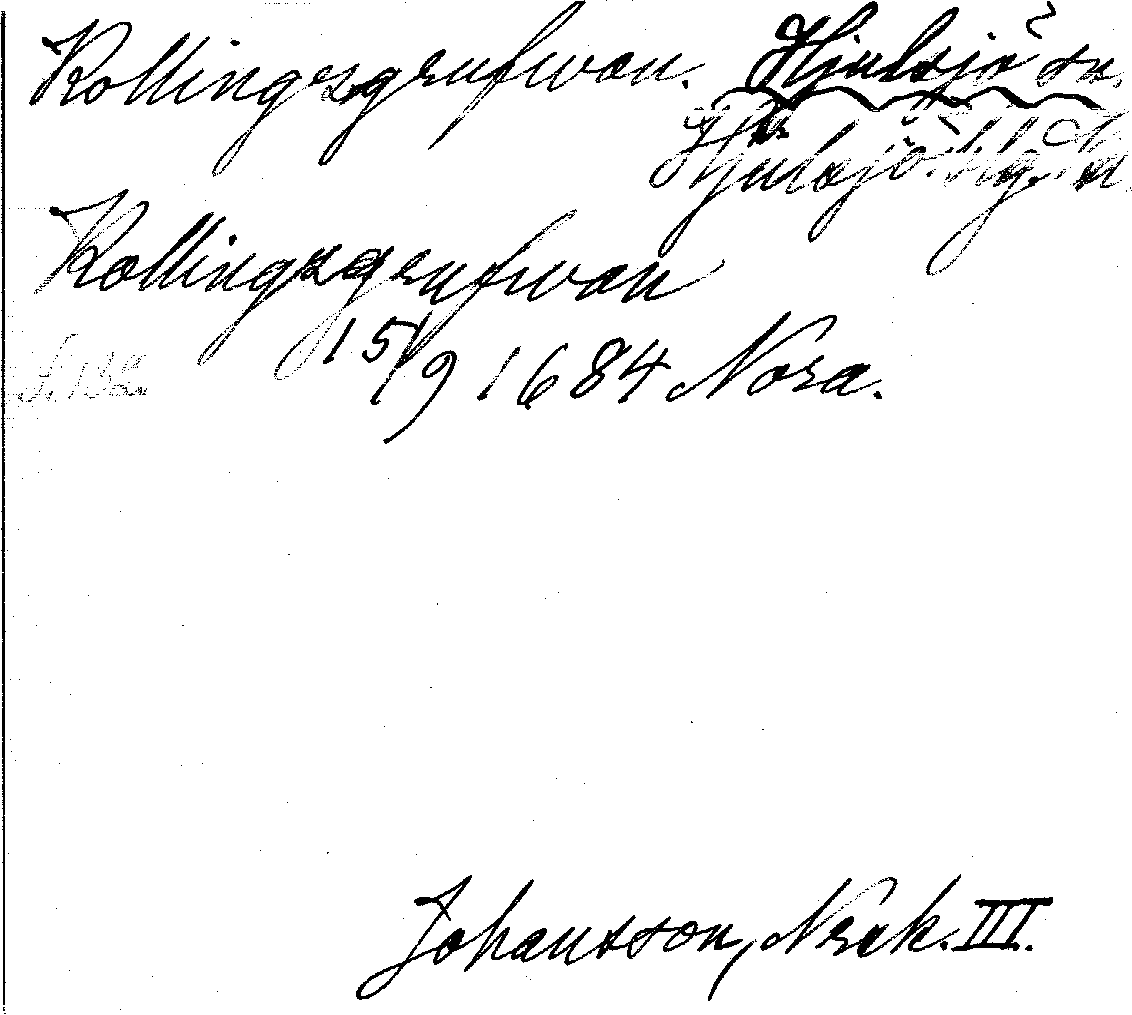 Kollingsgrufwan. Hjulsjö sn.
Hjulsjö
Kollingsgrufwan
15/9 1684 Nora.
S. 132.
Johansson, Nrak. III.